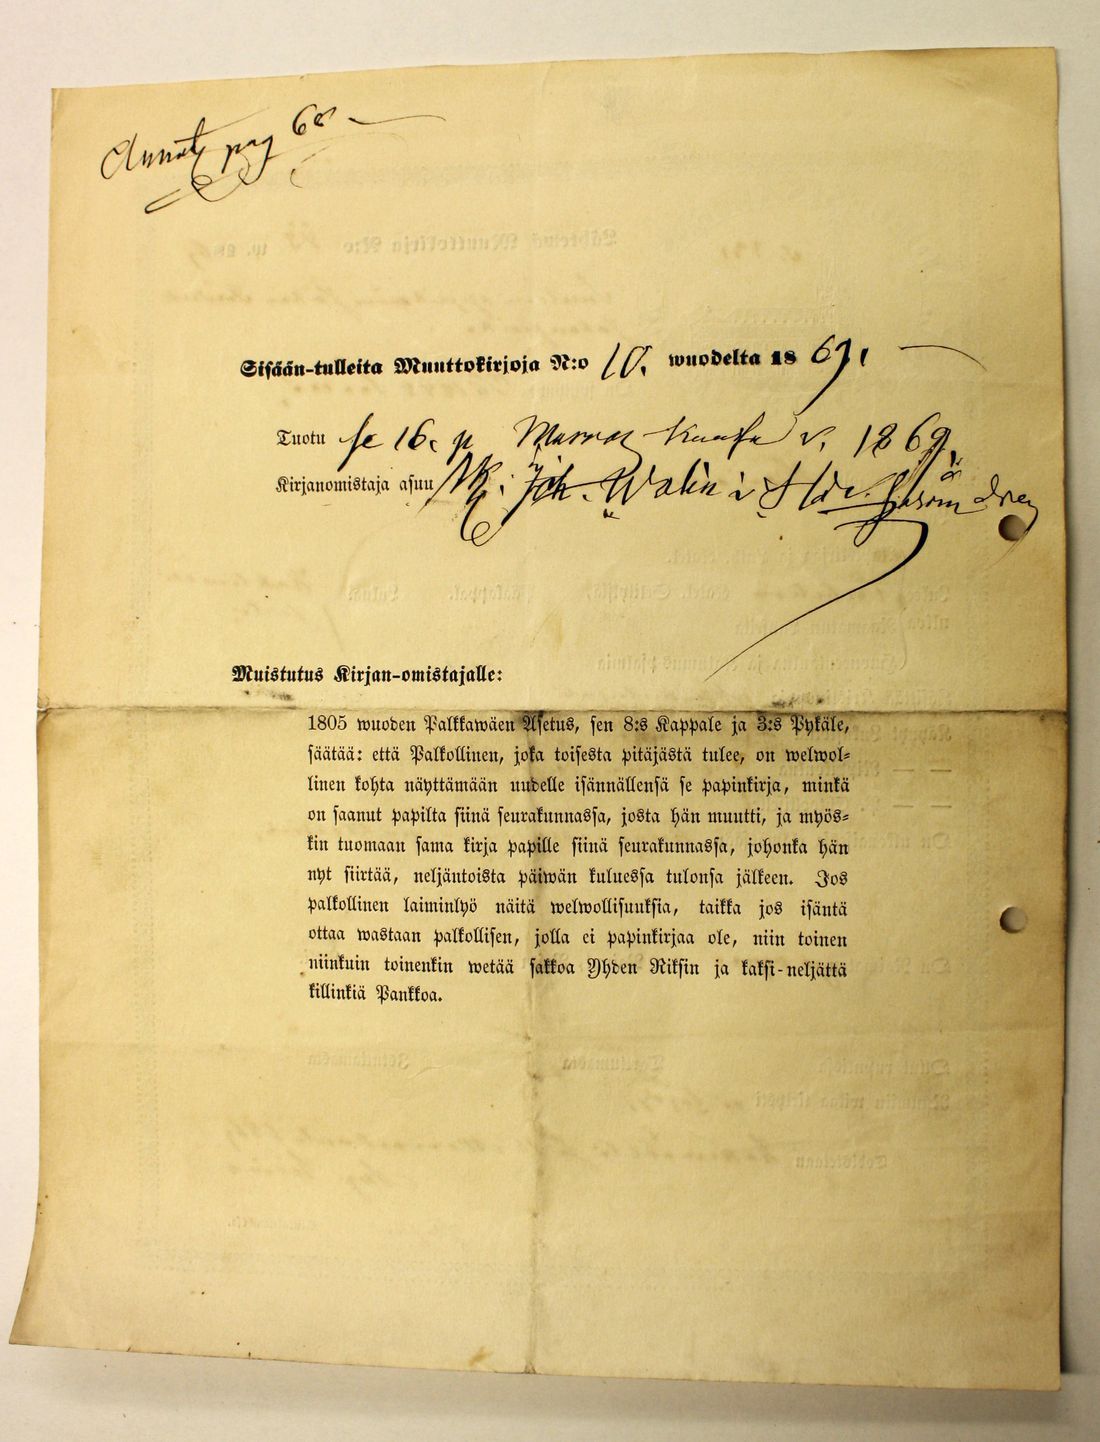 pag 68
Sisään-tulleita Muuttokirjoja N:o 10. wuodelta 1869.
Tuotu se 16. p Marras kuussa v. 1869.
Kirjanomistaja asuu Wolin i
Muistutus Kirjan-omistajalle:
1805 wuoden Palkkawäen Asetus, sen 8:s Kappale ja 3:s Pykäle,
säätää: että Palkollinen, joka toisesta pitäjästä tulee, on welwol-
linen kohta näyttämään uudelle isännällensä se papinkirja, minkä
on saanut papilta siinä seurakunnassa, josta hän muutti, ja myös-
kin tuomaan sama kirja papille siinä seurakunnassa, johonka hän
nyt siirtää, neljäntoista päiwän kuluessa tulonsa jälkeen. Jos
palkollinen laiminlyö näitä welwollisuuksia, taikka jos isäntä
ottaa wastaan palkollisen, jolla ei papinkirjaa ole, niin toinen
niinkuin toinenkin wetää sakkoa Yhden Riksin ja kaksi-neljättä
killinkiä Pankkoa.